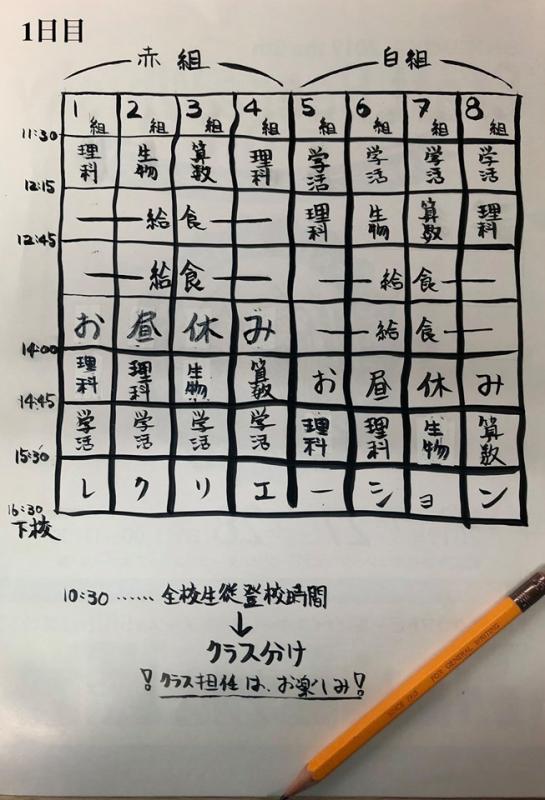 1日目
赤組 白組
1組 2組 3組 4組 5組 6組 7組 8組
11:30
理科 生物 算数 理科 学活 学活 学活 学活
12:15
給食 理科 生物 算数 理科
12:45
給食 給食
お昼休み 給食
14:00
理科 理科 生物 算数 お昼休み
14:45
学活 学活 学活 学活 理科 理科 生物 算数
15:30
レクリエーション
16:30
下校
10:30 …… 全校生徒登校時間
↓
クラス分け
!クラス担任は、お楽しみ!
FOR GENERAL WRITING